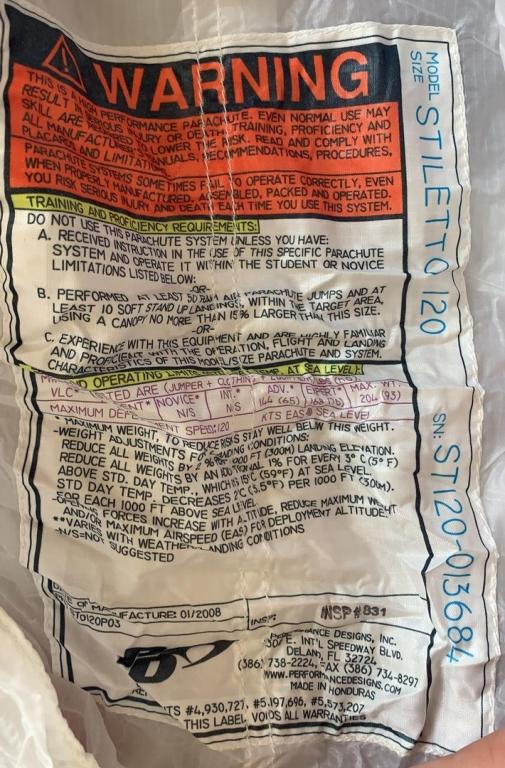 WARNING
THIS IS A HIGH PERFORMANCE PARACHUTE. EVEN NORMAL USE MAY
RESULT IN SERIOUS INJURY OR DEATH. TRAINING, PROFICIENCY AND
SKILL ARE TO LOWER THE RISK. READ AND COMPLY WITH
ALL MANUFACTURER MANUALS, RECOMMENDATIONS, PROCEDURES,
PLACARDS AND LIMITAT
PARACHUTE SYSTEMS SOMETIMES FAIL TO OPERATE CORRECTLY, EVEN
WHEN PROPERLY MANUFACTURED, ASSEMBLED, PACKED AND OPERATED.
YOU RISK SERIOUS INJURY AND DEATH EACH TIME YOU USE THIS SYSTEM.
TRAINING AND PROFICIENCY REQUIREMENTS:
DO NOT USE THIS PARACHUTE SYSTEM UNLESS YOU HAVE:
A. RECEIVED INSTRUCTION IN THE USE OF THIS SPECIFIC PARACHUTE
SYSTEM AND OPERATE IT WITHIN THE STUDENT OR NOVICE
LIMITATIONS LISTED BELOW:
-OR-
B. PERFORMED AT LEAST 50 RAM AIR PARACHUTE JUMPS AND AT
LEAST 10 SOFT STAND UP LANDINGS, WITHIN THE TARGET AREA,
USING A CANOPY NO MORE THAN 15% LARGER THAN THIS SIZE.
-OR-
C. EXPERIENCE WITH THIS EQUIPMENT AND ARE HIGHLY FAMILIAR
AND PROFICIENT WITH THE OPERATION, FLIGHT AND LANDING
CHARACTERISTICS OF THIS MODEL/SIZE PARACHUTE AND SYSTEM.
AND OPERATING LIMIT TEMP. AT SEA LEVEL):
VLC* TED ARE (JUMPER + CLOTHING + EQUIPMENT)
NOVICE* INT.* ADV.* EXPERT MAX. WT.
N/S N/S 144 (65) 168 (76) 204 (93)
MAXIMUM DEPL ENT SPEED: 120 KTS EAS @ SEA LEVEL
*MAXIMUM WEIGHT, TO REDUCE RISKS STAY WELL BELOW THIS WEIGHT.
-WEIGHT ADJUSTMENTS FOR LANDING CONDITIONS:
REDUCE ALL WEIGHTS BY 2% PER 1000 FT (300M) LANDING ELEVATION.
REDUCE ALL WEIGHTS BY AN ADDITIONAL 1% FOR EVERY 3°C (5°F)
ABOVE STD. DAY TEMP., WHICH IS 15°C (59°F) AT SEA LEVEL.
STD DAY TEMP. DECREASES 2°C (3.5°F) PER 1000 FT (300M).
FOR EACH 1000 FT ABOVE SEA LEVEL
-OPENING FORCES INCREASE WITH ALTITUDE, REDUCE MAXIMUM WEIGHT
AND/OR MAXIMUM AIRSPEED (EAS) FOR DEPLOYMENT ALTITUDE.
**VARIES WITH WEATHER/LANDING CONDITIONS
-N/S=NOT SUGGESTED
DATE OF MANUFACTURE: 01/2008
INSP: INSP#831
ST0120P03
PD
PERFORMANCE DESIGNS, INC.
1300 E. INT'L SPEEDWAY BLVD.
DELAND, FL 32724
(386) 738-2224, FAX (386) 734-8297
WWW.PERFORMANCEDESIGNS.COM
MADE IN HONDURAS
TS #4,930,727, #5,197,696, #5,573,207
THIS LABEL VOIDS ALL WARRANTIES
MODEL STILETTO 120
SIZE
SN: ST120-013684